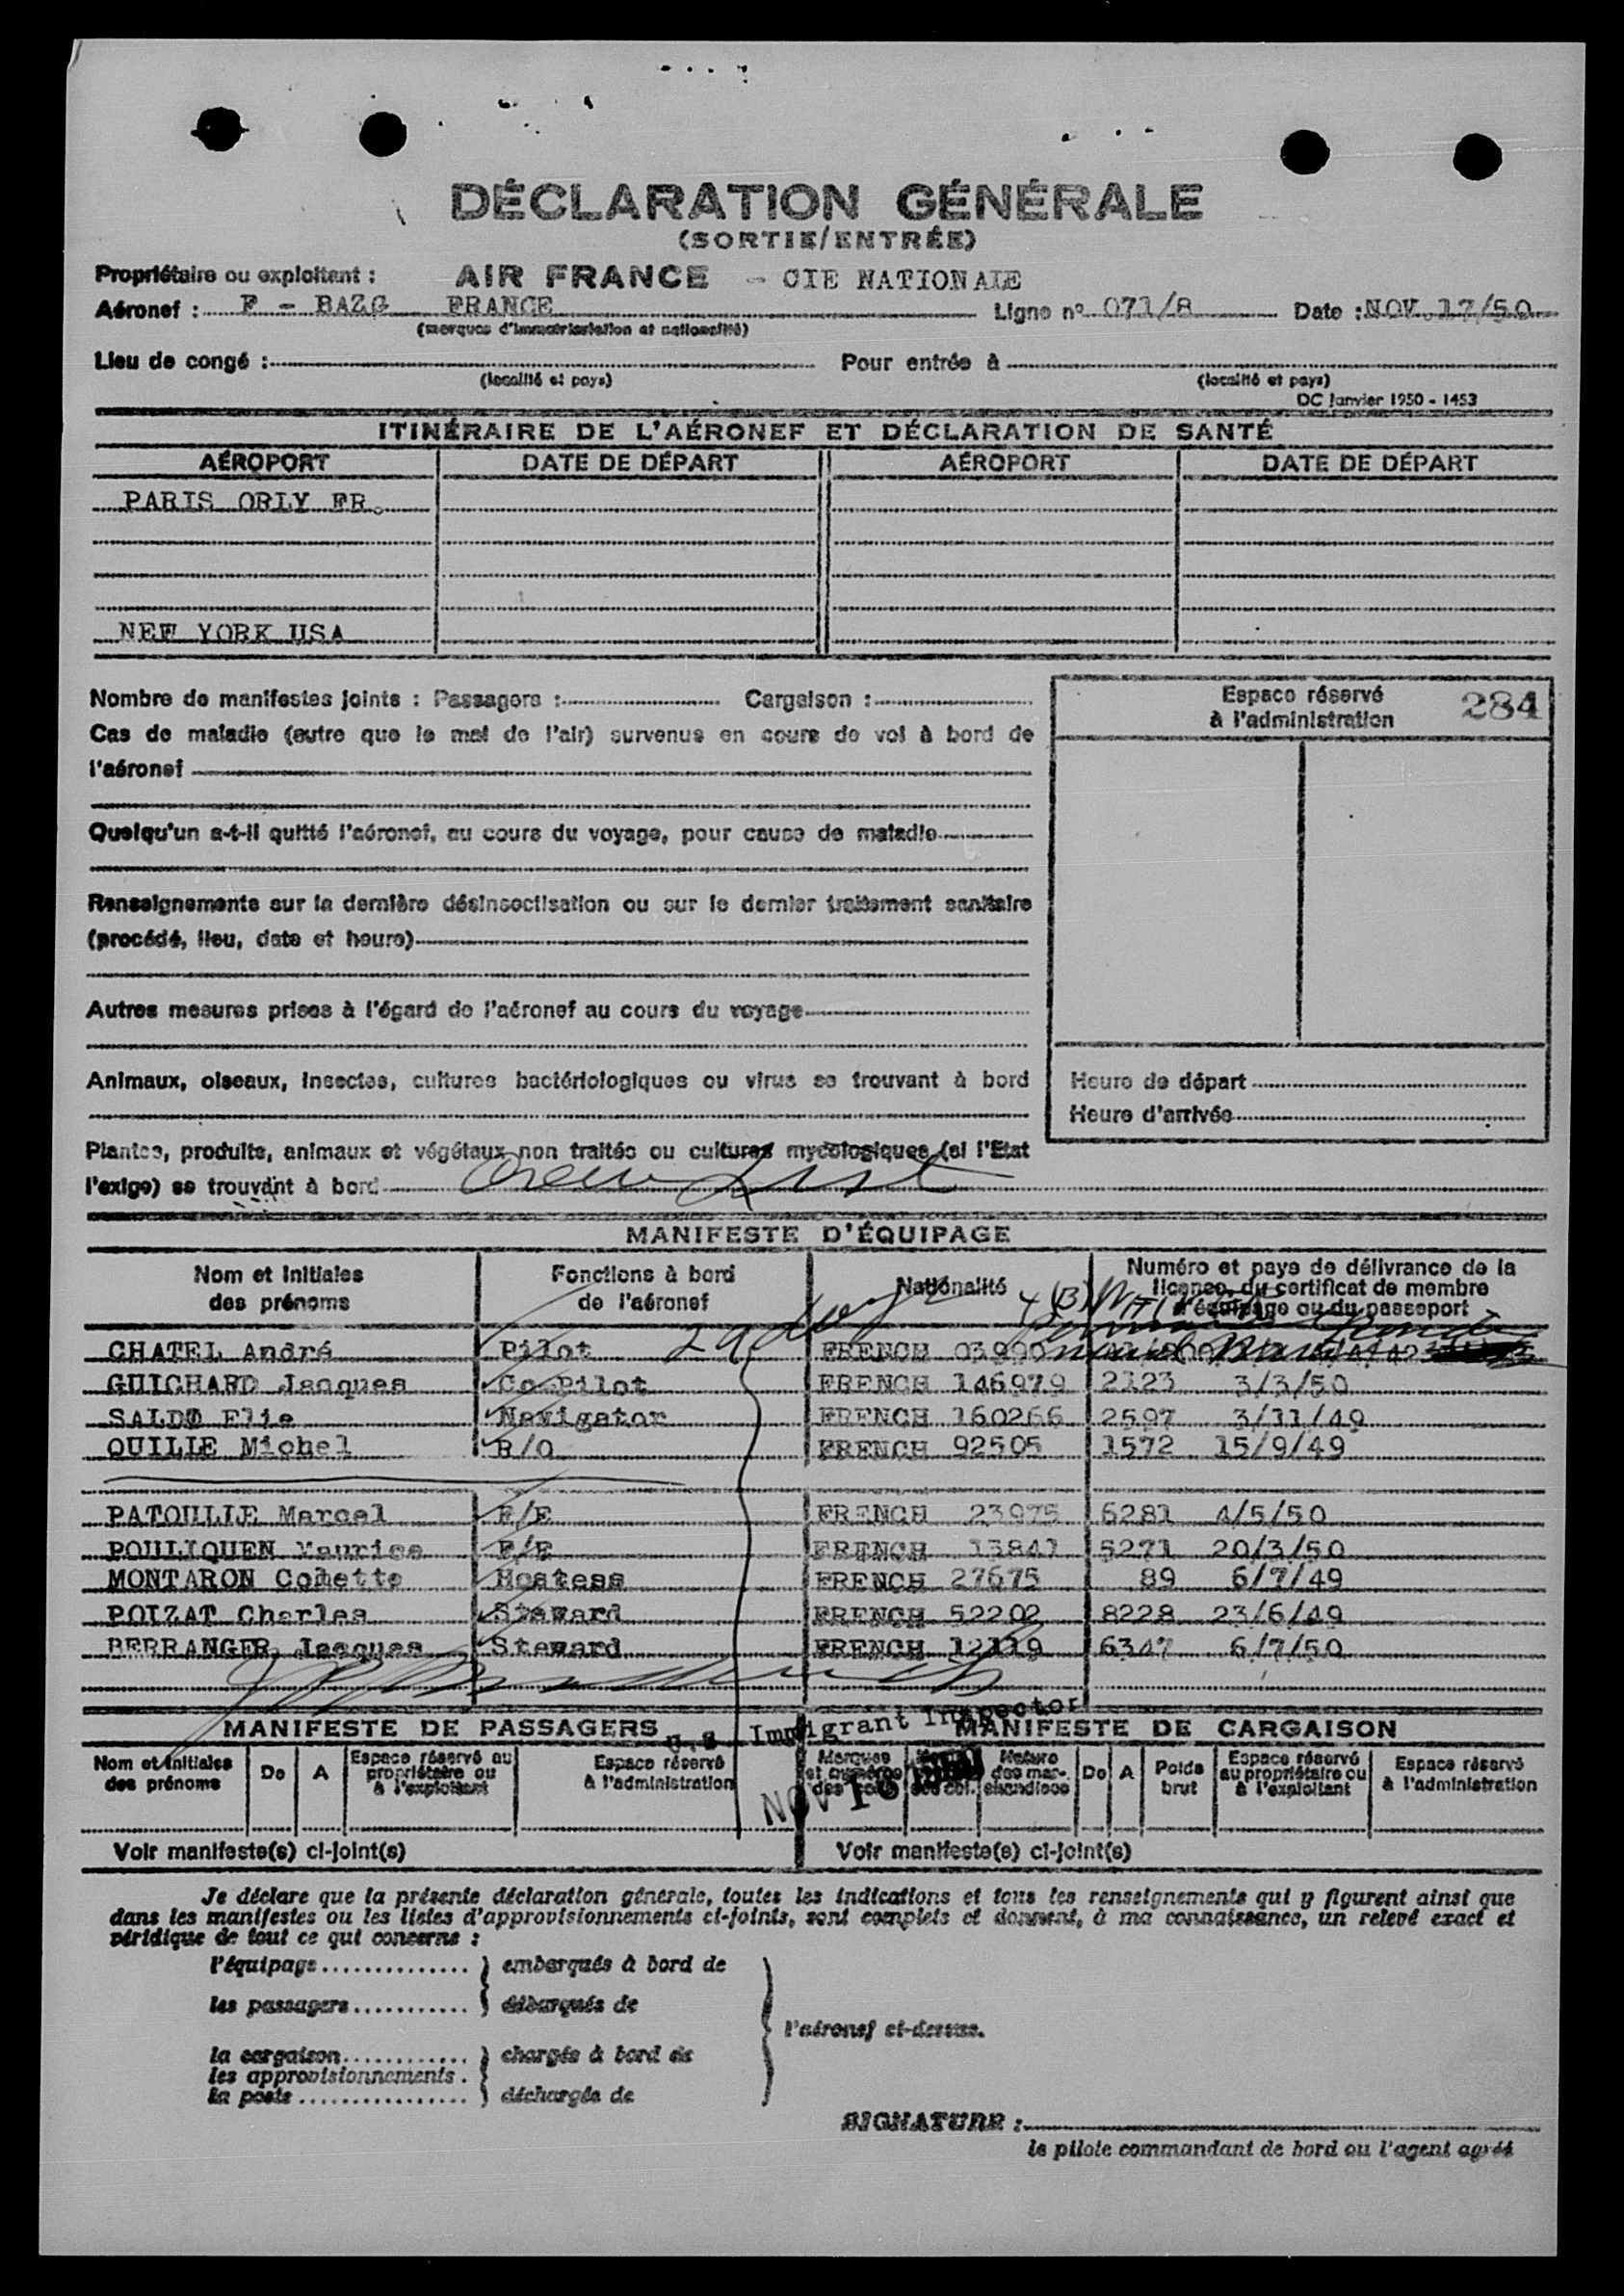 DÉCLARATION GÉNÉRALE
(SORTIE/ENTRÉE)
Propriétaire ou exploitant : AIR FRANCE - CIE NATIONALE
Aéronef : F - BAZG FRANCE Ligne nº 071/8 Date : NOV. 17/50
(marques d'immatriculation et nationalité)
Lieu de congé : Pour entrée à
(localité et pays) (localité et pays)
DC Janvier 1950 - 1453
ITINÉRAIRE DE L'AÉRONEF ET DÉCLARATION DE SANTÉ
AÉROPORT DATE DE DÉPART AÉROPORT DATE DE DÉPART
PARIS ORLY FR.
NEW YORK USA
Nombre de manifestes joints : Passagers : Cargaison :
Espace réservé
à l'administration 284
Cas de maladie (autre que le mal de l'air) survenus en cours de vol à bord de
l'aéronef
Quelqu'un a-t-il quitté l'aéronef, au cours du voyage, pour cause de maladie
Renseignements sur la dernière désinsectisation ou sur le dernier traitement sanitaire
(procédé, lieu, date et heure)
Autres mesures prises à l'égard de l'aéronef au cours du voyage
Animaux, oiseaux, insectes, cultures bactériologiques ou virus se trouvant à bord
Heure de départ
Heure d'arrivée
Plantes, produits, animaux et végétaux non traités ou cultures mycologiques (si l'Etat
l'exige) se trouvant à bord Crew List
MANIFESTE D'ÉQUIPAGE
Nom et initiales des prénoms Fonctions à bord de l'aéronef Nationalité Numéro et pays de délivrance de la licence, du certificat de membre d'équipage ou du passeport
29 days
CHATEL André Pilot FRENCH 03990
GUICHARD Jacques Co-Pilot FRENCH 146979 2123 3/3/50
Elie Navigator FRENCH 160266 2597 3/11/49
QUILLE Michel R/O FRENCH 92505 1572 15/9/49
PATOULLE Marcel F/E FRENCH 23975 6281 4/5/50
POULIQUEN Maurice F/E FRENCH 13841 5271 20/3/50
MONTARON FRENCH 27675 Hostess 89 6/7/49
POIZAT Charles Steward FRENCH 52202 8228 23/6/49
BERRANGER Jacques Steward FRENCH 12119 6347 6/7/50
U.S. Immigrant Inspector
NOV
MANIFESTE DE PASSAGERS MANIFESTE DE CARGAISON
Nom et initiales des prénoms De A Espace réservé au propriétaire ou à l'exploitant Espace réservé à l'administration Marques et numéros des col. Nature des marchandises De A Poids brut Espace réservé au propriétaire ou à l'exploitant Espace réservé à l'administration
Voir manifeste(s) ci-joint(s) Voir manifeste(s) ci-joint(s)
Je déclare que la présente déclaration générale, toutes les indications et tous les renseignements qui y figurent ainsi que
dans les manifestes ou les listes d'approvisionnements ci-joints, sont complets et donnent, à ma connaissance, un relevé exact et
véridique de tout ce qui concerne :
l'équipage embarqués à bord de
les passagers débarqués de
l'aéronef ci-dessus.
la cargaison chargés à bord de
les approvisionnements
la poste déchargés de
SIGNATURE :
le pilote commandant de bord ou l'agent agréé